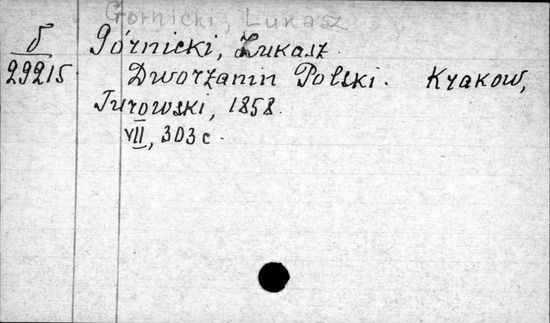 Górnicki, Lukasz
б Górnicki, Łukasz.
29215 Dworzanin Polski. Krakow,
Turowski, 1858.
VII, 303 c.